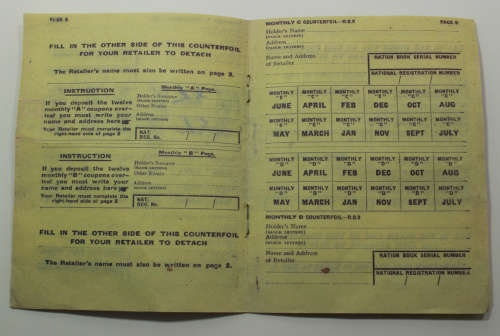 PAGE 8
FILL IN THE OTHER SIDE OF THIS COUNTERFOIL
FOR YOUR RETAILER TO DETACH
The Retailer's name must also be written on page 2.
INSTRUCTION
If you deposit the twelve
monthly "A" coupons over-
leaf you must write your
name and address here
Your Retailer must complete the
right-hand side of page 2
Monthly "A" Page.
Holder's Surname
(BLOCK LETTERS)
Other Names
Address
(BLOCK LETTERS)
NAT.
REG. No.
INSTRUCTION
If you deposit the twelve
monthly "B" coupons over-
leaf you must write your
name and address here
Your Retailer must complete the
right-hand side of page 2
Monthly "B" Page.
Holder's Surname
(BLOCK LETTERS)
Other Names
Address
(BLOCK LETTERS)
NAT.
REG. No.
FILL IN THE OTHER SIDE OF THIS COUNTERFOIL
FOR YOUR RETAILER TO DETACH
The Retailer's name must also be written on page 2.
MONTHLY C COUNTERFOIL—R.B.9
PAGE 9
Holder's Name
(BLOCK LETTERS)
Address
(BLOCK LETTERS)
Name and Address
of Retailer
RATION BOOK SERIAL NUMBER
NATIONAL REGISTRATION NUMBER
MONTHLY MONTHLY MONTHLY MONTHLY MONTHLY MONTHLY
"C" "C" "C" "C" "C" "C"
JUNE APRIL FEB DEC OCT AUG
MONTHLY MONTHLY MONTHLY MONTHLY MONTHLY MONTHLY
"C" "C" "C" "C" "C" "C"
MAY MARCH JAN NOV SEPT JULY
MONTHLY MONTHLY MONTHLY MONTHLY MONTHLY MONTHLY
"D" "D" "D" "D" "D" "D"
JUNE APRIL FEB DEC OCT AUG
MONTHLY MONTHLY MONTHLY MONTHLY MONTHLY MONTHLY
"D" "D" "D" "D" "D" "D"
MAY MARCH JAN NOV SEPT JULY
MONTHLY D COUNTERFOIL—R.B.9
Holder's Name
(BLOCK LETTERS)
Address
(BLOCK LETTERS)
Name and Address
of Retailer
RATION BOOK SERIAL NUMBER
NATIONAL REGISTRATION NUMBER